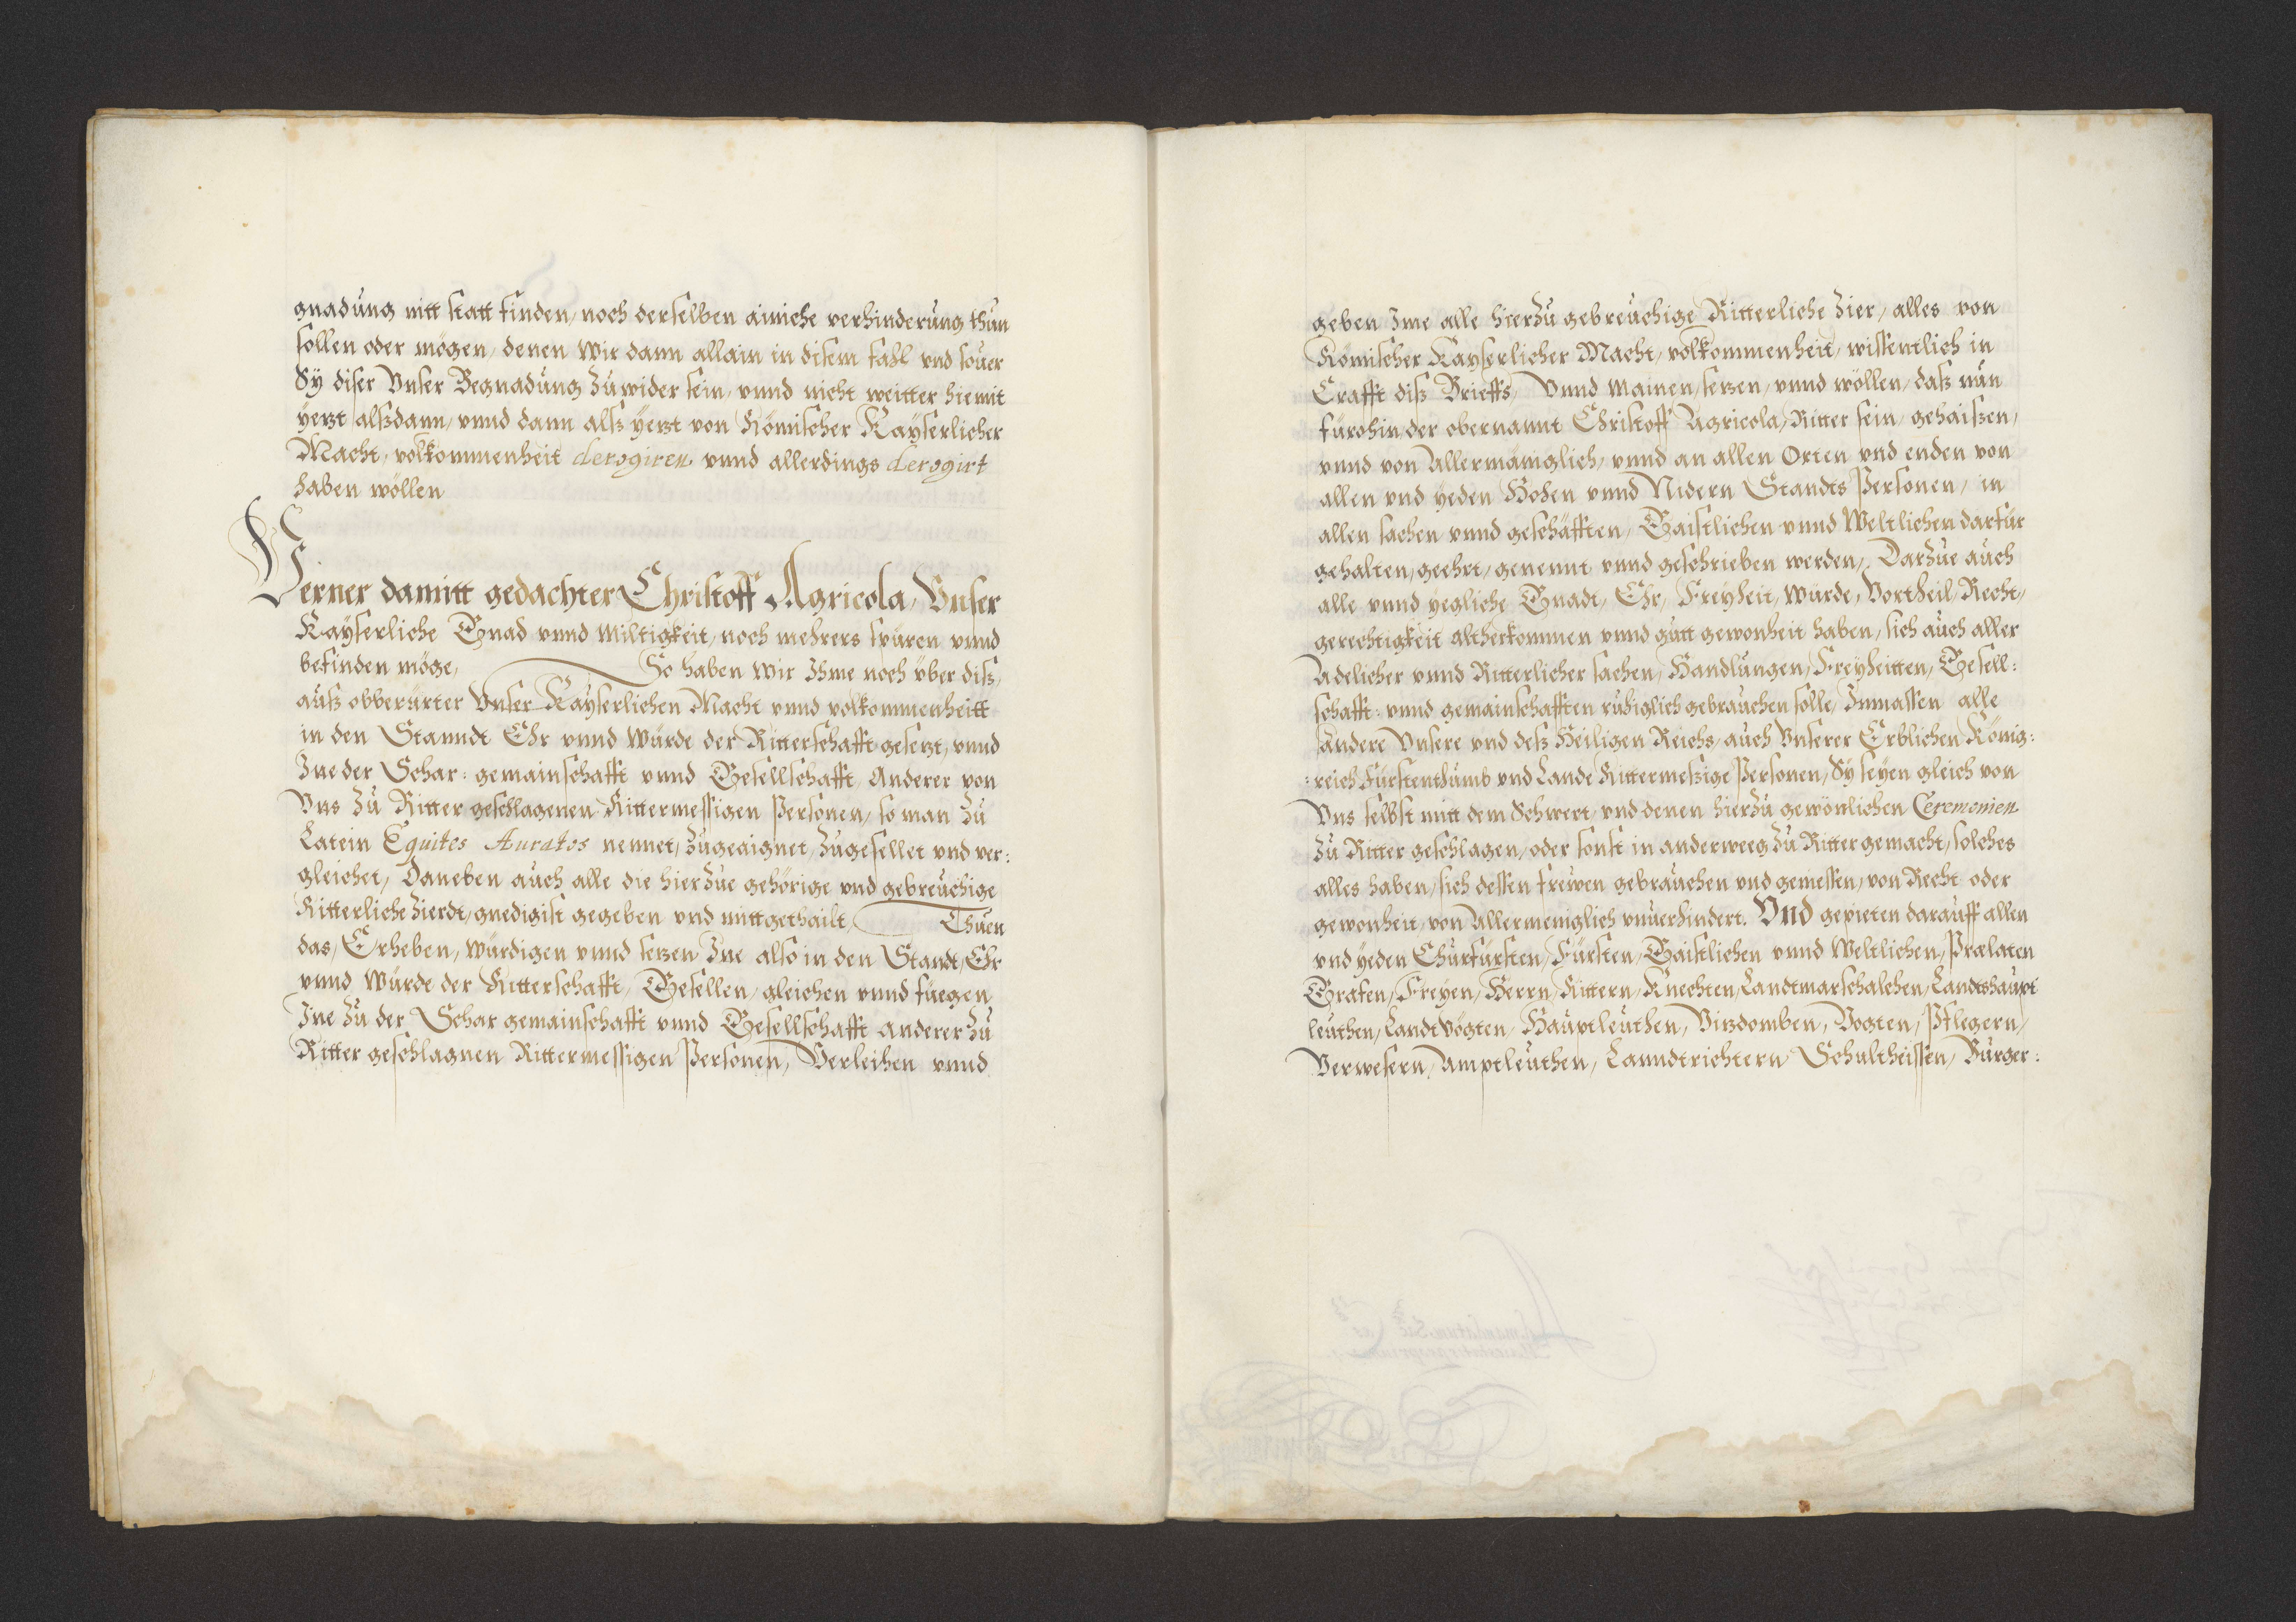 gnadung nitt statt finden, noch derselben ainiche verhinderung thun
sollen oder mögen, denen Wir dann allain in disem fahl vnd souer
Sÿ diser Vnser Begnadung zuwider sein, vnnd nicht weitter hiemit
yetzt alßdann, vnnd dann alß yetzt von Römischer Kayserlicher
Macht, volkommenheit derogiren vnnd allerdings derogirt
haben wöllen
Ferner damitt gedachter Christoff Agricola, Vnser
Kayserliche Gnad vnnd Miltigkeit, noch mehrers spüren vnnd
befinden möge, So haben Wir Ihme noch über diß,
auß obberürter Vnser Kayserlichen Macht vnnd volkommenheitt
in den Stanndt Ehr vnnd Würde der Ritterschafft gesetzt, vnnd
Ine der Schar: gemainschafft vnnd Gesellschafft Anderer von
Vns zu Ritter geschlagenen Rittermessigen Personen, so man zu
Latein Equites Auratos nennet, zugeaignet, zugesellet vnd ver:
gleichet, Daneben auch alle die hierzue gehörige vnd gebreuchige
Ritterliche Zierdt, gnedigist gegeben vnd mittgethailt, Thuen
das, Erheben, Würdigen vnnd setzen Ine also in den Standt, Ehr
vnnd Würde der Ritterschafft, Gesellen, gleichen vnnd fuegen
Ine zu der Schar gemainschafft vnnd Gesellschafft anderer zu
Ritter geschlagnen Rittermessigen Personen, Verleihen vnnd
geben Ime alle hierzu gebreuchige Ritterliche Zier, alles von
Römischer Kayserlicher Macht, volkommenheit, wissentlich in
Crafft diß Brieffs, Vnnd Mainen, setzen, vnnd wöllen, daß nun
fürohin, der obernannt Christoff Agricola, Ritter sein, gehaissen,
vnnd von Allermäniglich, vnnd an allen Orten vnd enden von
allen vnd yeden Hohen vnnd Nidern Standts Personen, in
allen sachen vnnd geschäfften, Gaistlichen vnnd Weltlichen darfür
gehalten, geehrt, genennt vnnd geschrieben werden, Darzue auch
alle vnnd yegliche Gnadt, Ehr, Freyheit, Würde, Vortheil, Recht,
gerechtigkeit altherkommen vnnd gutt gewonheit haben, sich auch aller
Adelicher vnnd Ritterlicher sachen, Handlungen, Freyheitten, Gesell:
schafft: vnnd gemainschafften ruhiglich gebrauchen solle, Inmassen alle
andere Vnsere vnd deß Heiligen Reichs, auch Vnserer Erblichen König:
:reich Fürstenthumb vnd Lande Rittermeßige Personen, Sÿ seyen gleich von
Vns selbst mitt dem Schwert, vnd denen hierzu gewönlichen Ceremonien
zu Ritter geschlagen, oder sonst in anderweeg zu Ritter gemacht, solches
alles haben, sich dessen frewen gebrauchen vnd geniessen, von Recht oder
gewonheit, von Allermeniglich vnuerhindert. Vnd gepieten darauff allen
vnd yeden Churfürsten, Fürsten, Gaistlichen vnnd Weltlichen, Prælaten
Grafen, Freyen, Herrn, Rittern, Knechten, Landtmarschalchen, Landtshaupt
leuthen, Landtvögten, Hauptleuthen, Vitzdomben, Vogten, Pflegern,
Verwesern, Amptleuthen, Lanndtrichtern, Schultheissen, Burger: